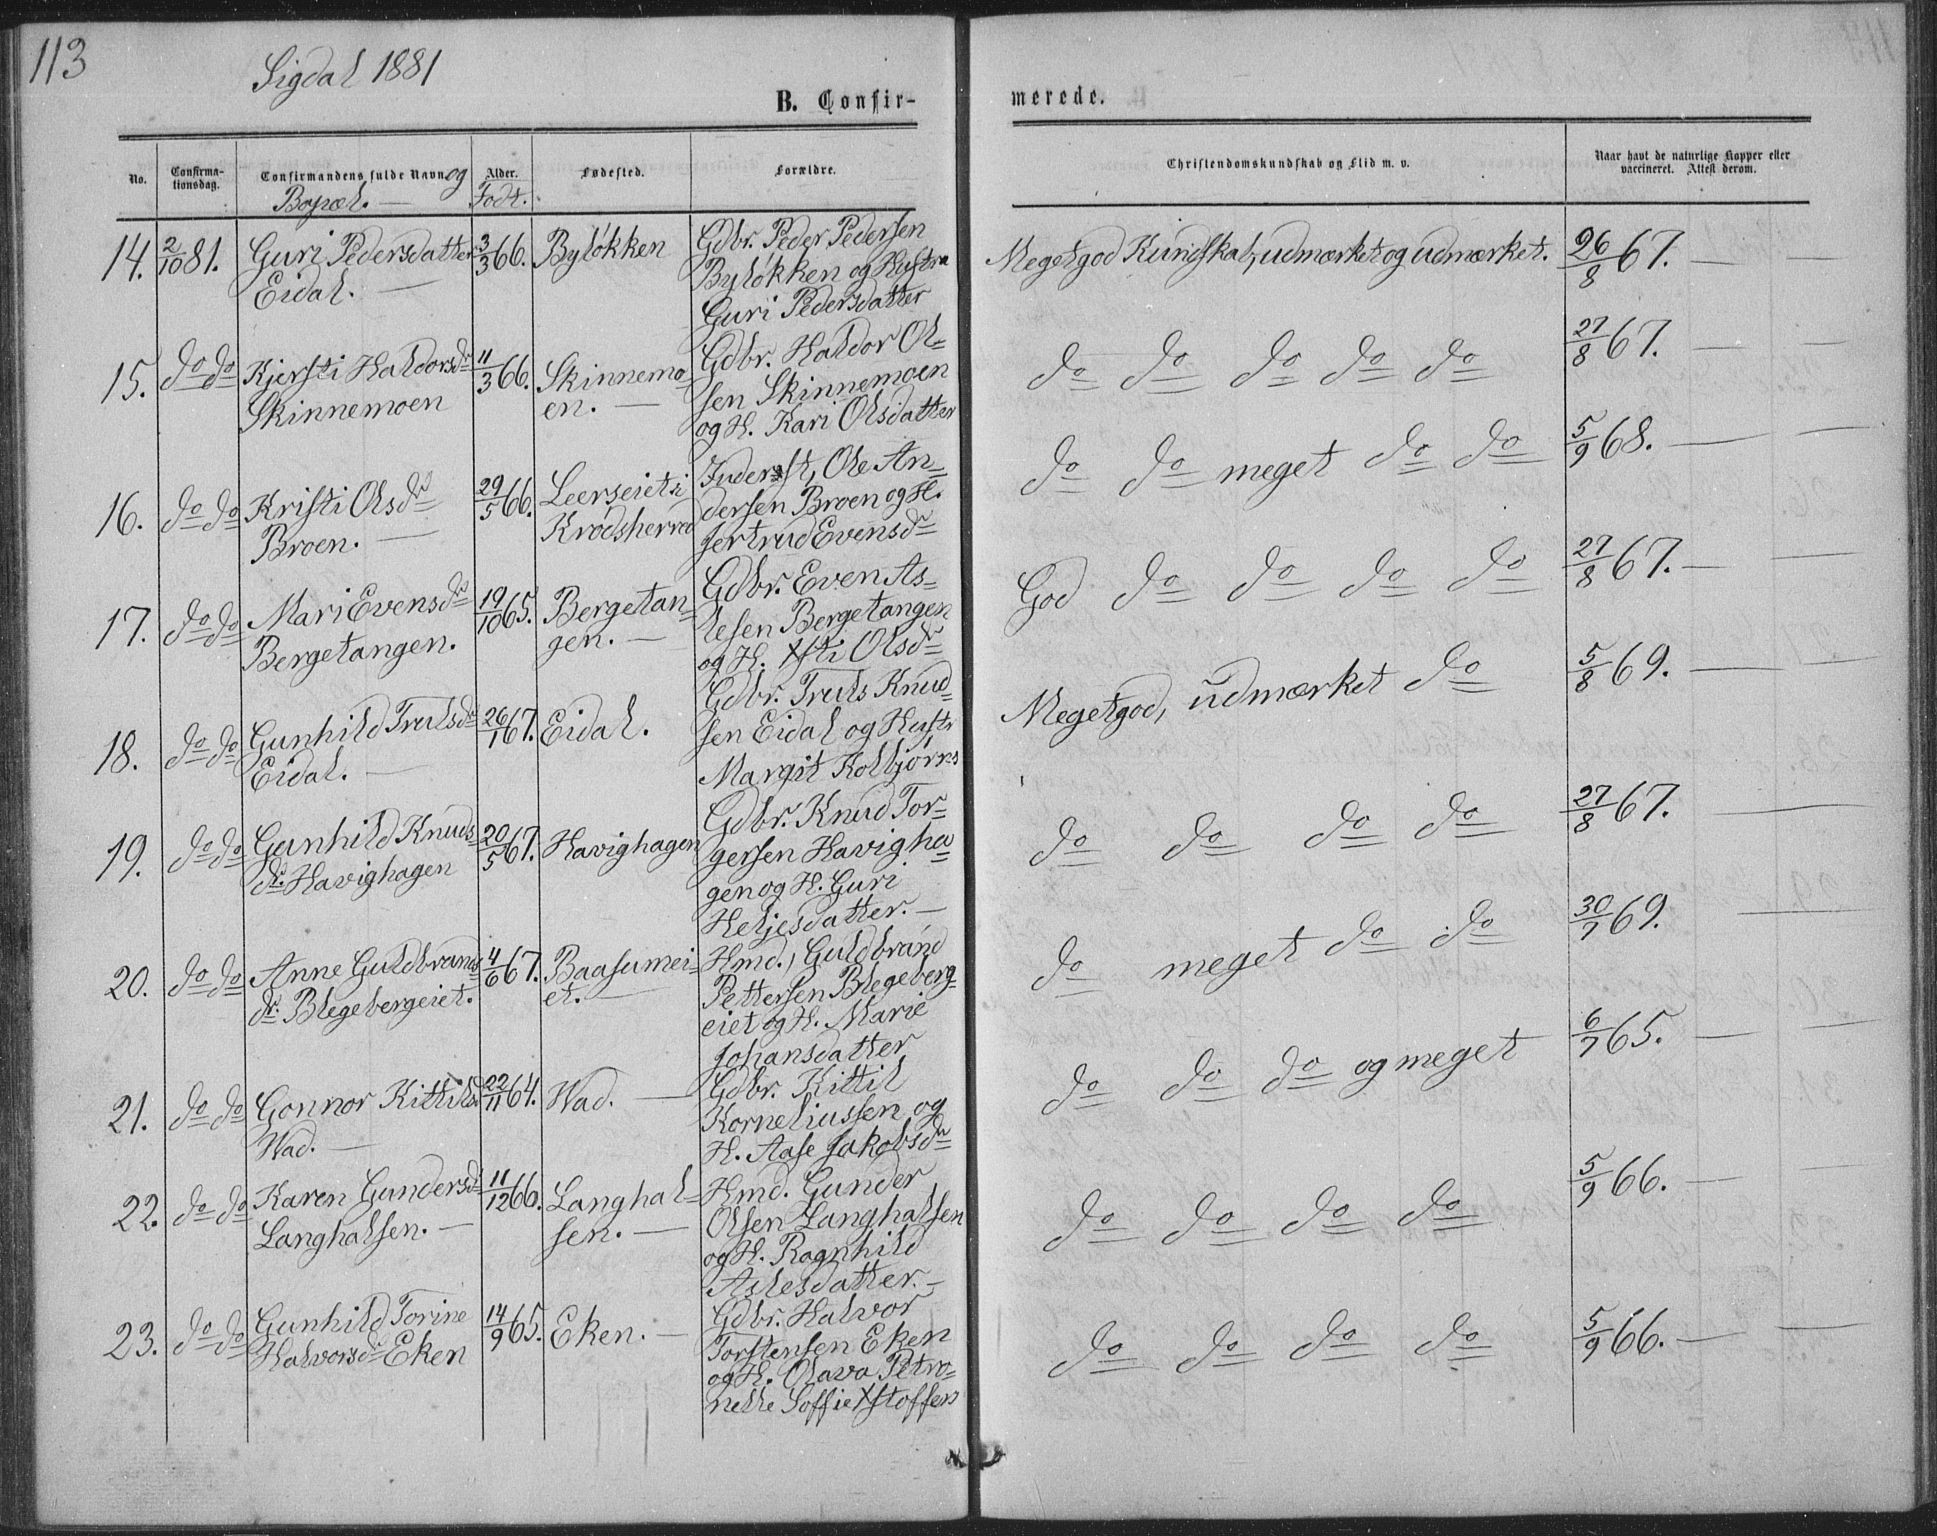 113
Sigdal 1881
B. Confir-
merede.
No.
Confirma-
tionsdag.
Confirmandens fulde Navn og
Bopæl. —
Alder.
Født.
Fødested.
Forældre.
Christendomskundskab og Flid m. v.
Naar havt de naturlige Kopper eller
vaccineret. Attest derom.
14. 2/10 81. Guri Pedersdatter 3/3 66. Byløkken Gdbr. Peder Pedersen
Eidal. — Byløkken og Hustru
Guri Pedersdatter
Megetgod Kundskab, udmærket og udmærket. 26/8 67. — —
15. do do Kjersti Haldorsdr 11/3 66. Skinnemo Gdbr. Haldor Ol-
Skinnemoen en. — sen Skinnemoen
og H. Kari Olsdatter
do do do do do 27/8 67. — —
16. do do Kristi Olsdr 29/5 66. Leerseiet i Inderst, Ole An-
Broen. — Krødsherred dersen Broen og H.
Jertrud Evensdr
do do meget do do 5/9 68. — —
17. do do Mari Evensdr 19/10 65. Bergetan- Gdbr. Even As-
Bergetangen. gen. — lesen Bergetangen
og H. Xsti Olsdr
God do do do do 27/8 67. — —
18. do do Gunhild Trulsdr 26/1 67. Eidal. Gdbr. Truls Knud-
Eidal. — sen Eidal og Hustr
Margit Kolbjørns
Megetgod, udmærket do 5/8 69. — —
19. do do Gunhild Knuds- 20/5 67. Havighagen Gdbr. Knud Tor-
dr. Havighagen gersen Havigha-
gen og H. Guri
Heljesdatter. —
do do do do 27/8 67. — —
20. do do Anne Guldbrands 4/6 67. Baasumei- Hmd., Guldbrand
dr. Blegebergeiet. et. — Pettersen Blegeberg-
eiet og H. Marie
Johansdatter
do meget do do 30/7 69. —
21. do do Gonnor Kittilsd. 22/11 64. Wad. — Gdbr. Kittil
Wad. — Korneliussen og
H. Aase Jakobsdr
do do do og meget 6/7 65. — —
22. do do Karen Gundersdr 11/12 66. Langhal- Hmd. Gunder
Langhalsen. — sen. — Olsen Langhalsen
og H. Ragnhild
Aslesdatter. —
do do do do 5/9 66. — —
23. do do Gunhild Torine 14/9 65. Eken. — Gdbr. Halvor
Halvorsdr Eken Torstensen Eken
og H. Olava Petro-
nelle Soffie Xstoffers
do do do do 5/9 66. — —